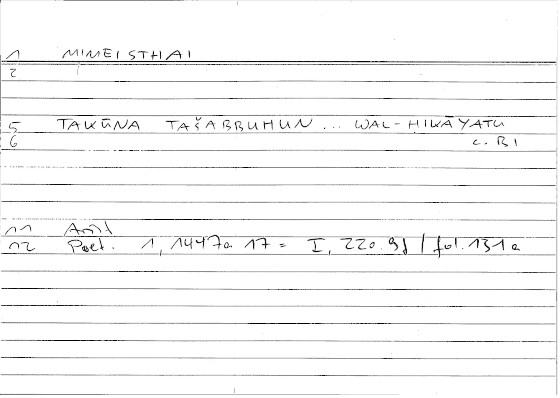 1 MIMEISTHAI
2
5 TAKŪNA TAŠABBUHUN ... WAL-HIKĀYATU
6 c. BI
11 Arist
12 Poet. 1, 1447a 17 = I, 220.9f / fol. 131a